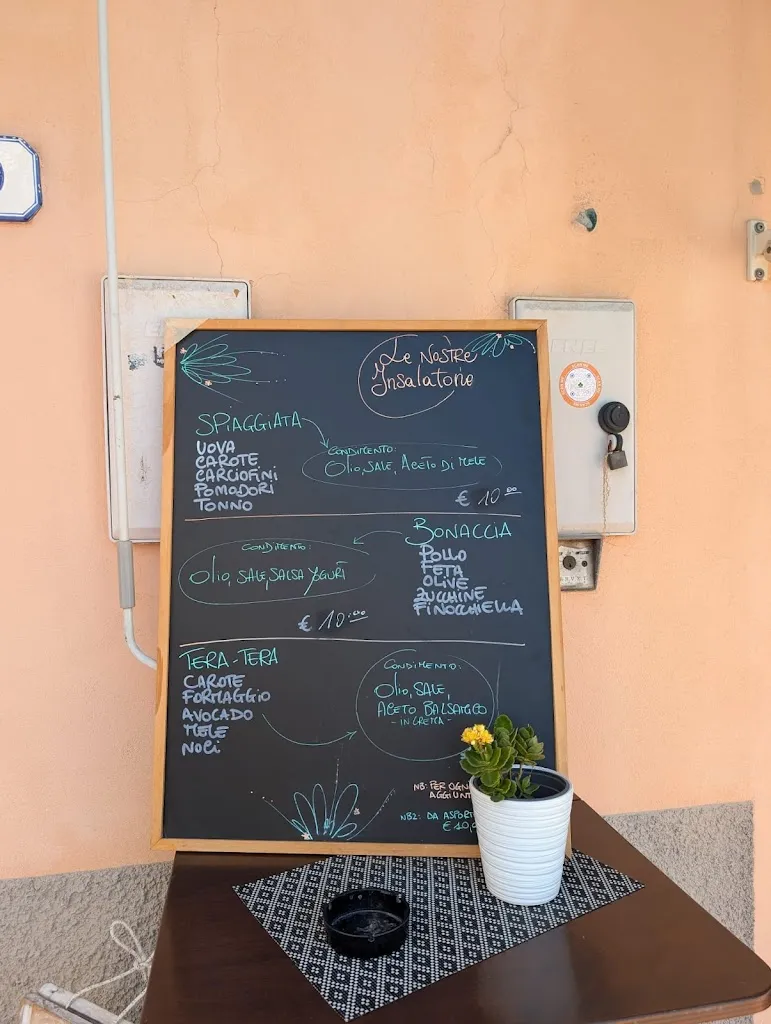 Le NoSTRE
Insalatone
SPiAGGiATA
UOVA
CAROTE
CARCIOFINI
POMODORI
TONNO
CONDIMENTO:
OLiO, SALE, ACETO DI MELE
€ 10.00
BONACCIA
POLLO
FETA
OLIVE
ZUCCHINE
FINOCCHIELLA
CONDIMENTO:
OLiO, SALE, SALSA YOGURT
€ 10.00
TERA-TERA
CAROTE
FORMAGGIO
AVOCADO
MELE
NOCI
CONDIMENTO:
OLiO, SALE,
ACETO BALSAMICO
- IN CREMA -
NB: PER OGN
AGGIUNT
NB2: DA ASPORT
€ 10,0